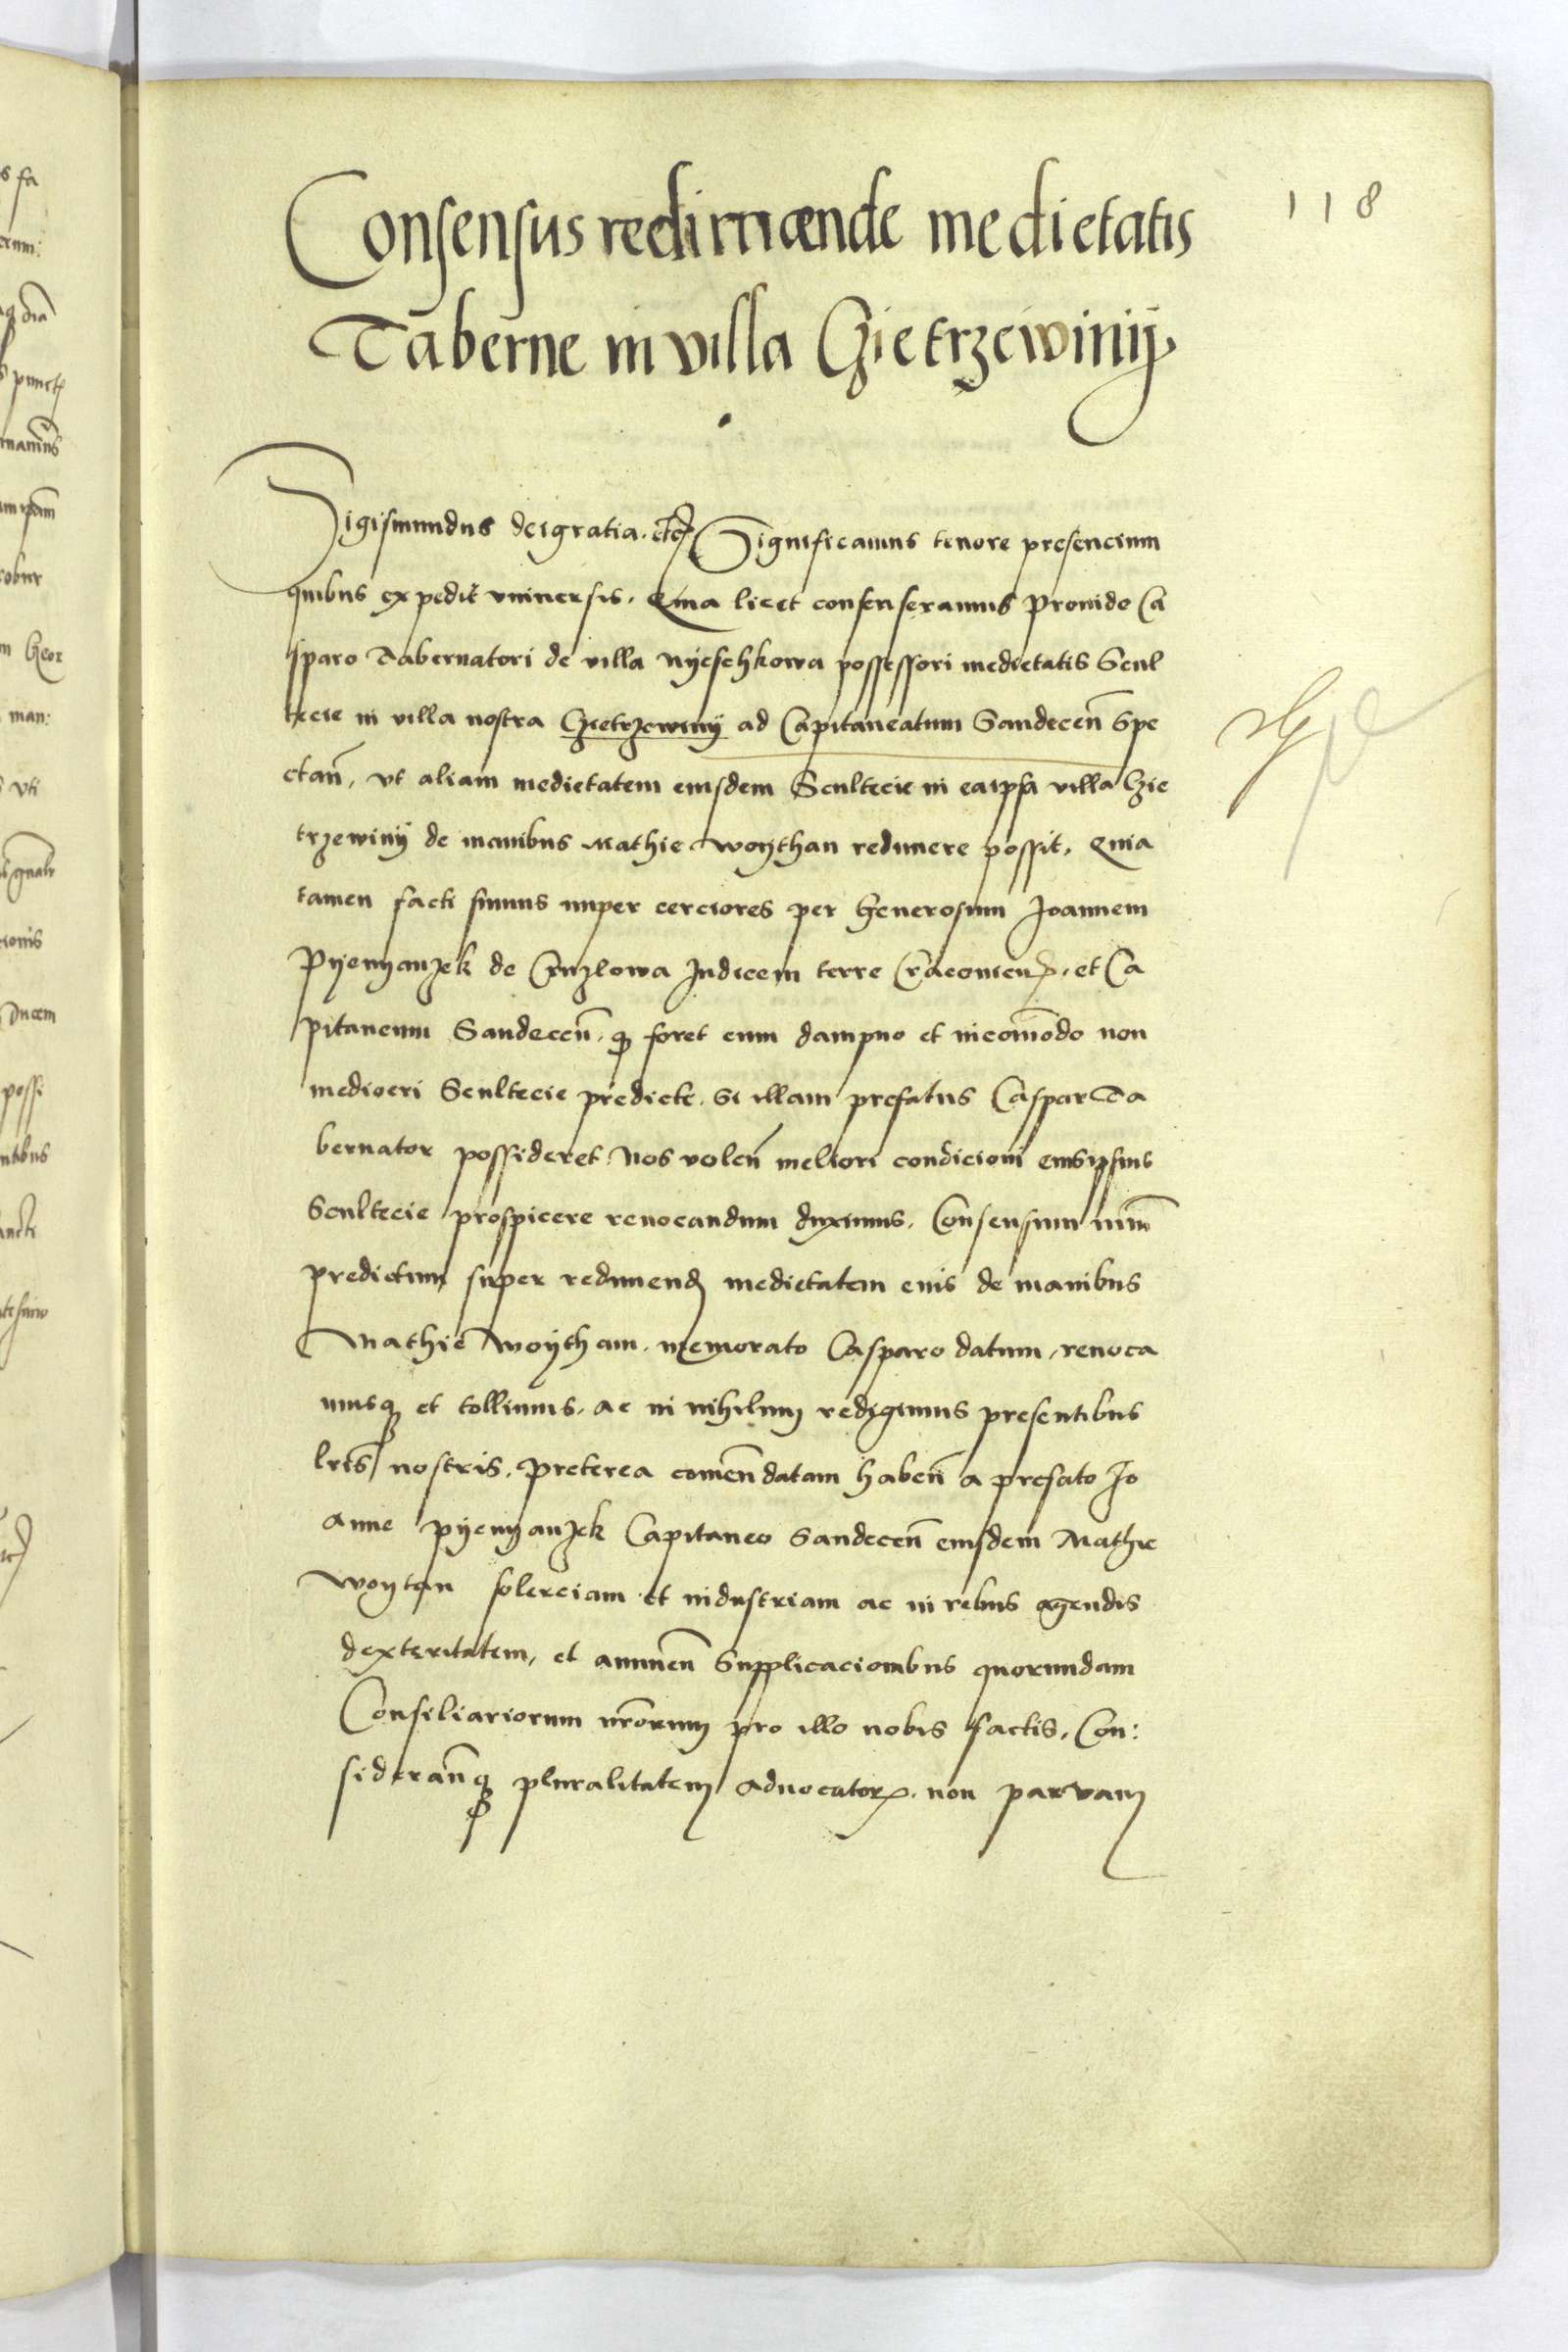 118
Consensus redimende medietatis
Taberne in villa Gietrzewinij
Sigismundus dei gratia. etc. Significamus tenore presencium
quibus expedit vniuersis. Quia licet consenseramus Prouido Ca
sparo Tabernatori de villa Nyeschkowa possessori medietatis Scul
tecie in villa nostra Gietrzewinij ad Capitaneatum Sandecen̄ Spe
ctan̄, vt aliam medietatem eiusdem Scultecie in ea ipsa villa Gie
trzewinij de manibus Mathie Woythan redimere possit. Quia
tamen facti sumus nuper cerciores per Generosum Joannem
Pyenyanzek de Cruzlowa Judicem terre Cracouien̄. et Ca
pitaneum Sandecen̄. q foret cum dampno et incom̄odo non
mediocri Scultecie predicte. si illam prefatus Caspar Ta
bernator possideret. Nos volen̄ meliori condicioni eius ipsius
Scultecie prospicere reuocandum duximus. Consensum nr̄m
predictum super redimend medietatem eius de manibus
Mathie Woytham. memorato Casparo datum, reuoca
musq et tollimus. ac in nihilum redigimus presentibus
lr̄is nostris. Preterea comen̄datam haben̄ a prefato Jo
anne Pyenyanzek Capitaneo Sandecen̄ eiusdem Mathie
Woytan solerciam et industriam ac in rebus agendis
dexteritatem, et annuen̄ Supplicacionibus quorundam
Consiliariorum nr̄orum pro illo nobis factis. Con:
sideran̄q pluralitatem aduocator. non paruam